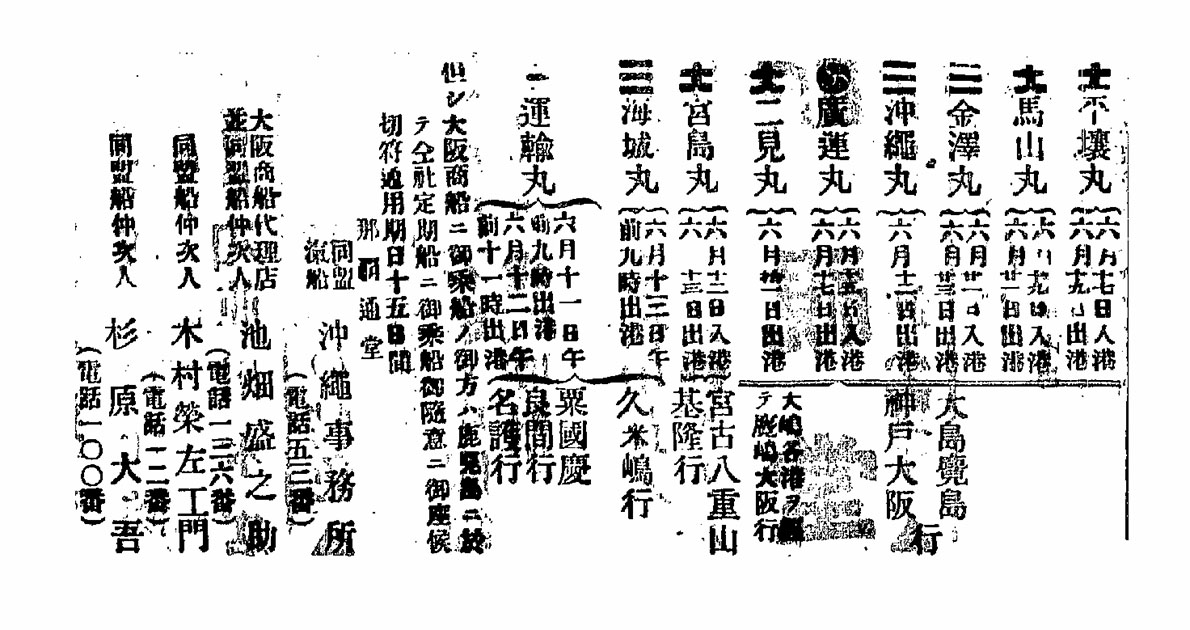 平壤丸
六月十七日入港
六月十九日出港
馬山丸
六月十九日入港
六月廿一日出港
金澤丸
六月廿一日入港
六月廿三日出港
沖繩丸
六月十二日出港
廣運丸
六月十五日入港
六月十七日出港
二見丸
六月拾一日出港
宮島丸
六月十二日入港
六月十三日出港
海城丸
六月十三日午
前九時出港
運輸丸
六月十一日午
前九時出港
六月十二日午
前十一時出港
大島鹿兒島
神戸大阪
行
大嶋各港ヲ經
テ鹿嶋大阪行
宮古八重山
基隆行
久米嶋行
粟國慶
良間行
名護行
但シ大阪商船ニ御乘船ノ御方ハ鹿兒島ニ於
テ仝社定期船ニ御乘船御隨意ニ御座候
切符通用期日十五日間
那覇通堂
同盟
滊船
沖繩事務所
(電話五三番)
大阪商船代理店
並同盟船仲次人
池畑盛之助
(電話一三六番)
同盟船仲次人
木村榮左工門
(電話一二番)
同盟船仲次人
杉原大吾
(電話一〇〇番)